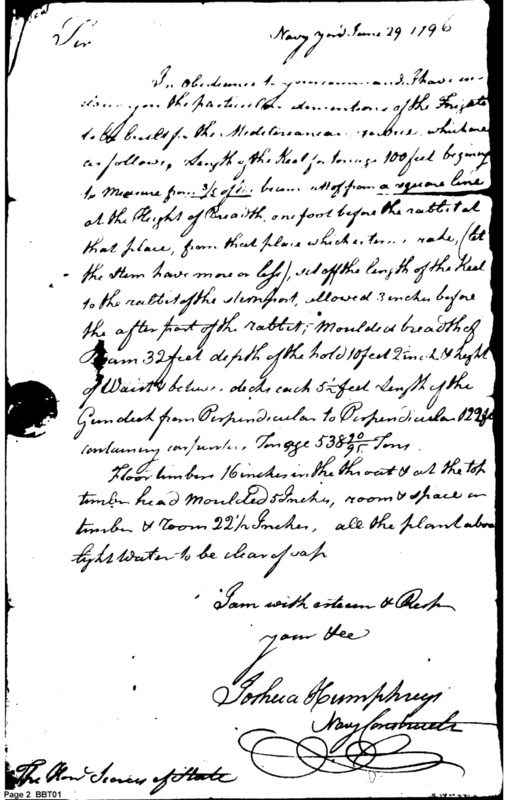 Navy yard June 29 1796
Sir
In obedience to your command I have in-
closed you the particular dementions of the Frigate
to be built for the Mediteranean service which are
as follows, Length of the Keel for tonage 100 feet begining
to measure from 3/5 of the beam sett off from a square line
at the Height of Breadth, one foot before the rabbit at
that place, from that place which is term'd rake, (let
the Stem have more or less), set off the length of the Keel
to the rabbit of the sternpost, allowed 3 inches before
the after part of the rabbit; Moulded breadth of
Beam 32 feet depth of the hold 10 feet 2 inch & height
of Waist & between decks each 5½ feet Length of the
Gundeck from Perpendicular to Perpendicular 122 fe
containing carpenters Tonage 538 20/95 Tons.
Floor timbers 16 inches in the throat & at the top
timber head Moulded 5 Inches, room & space or
timber & room 22½ Inches, all the plank above
light Water to be clear of sap
I am with esteem & Resp
your &ce
Joshua Humphreys
Navy Constructor
The Hon Secrey of State
Page 2 BBT01